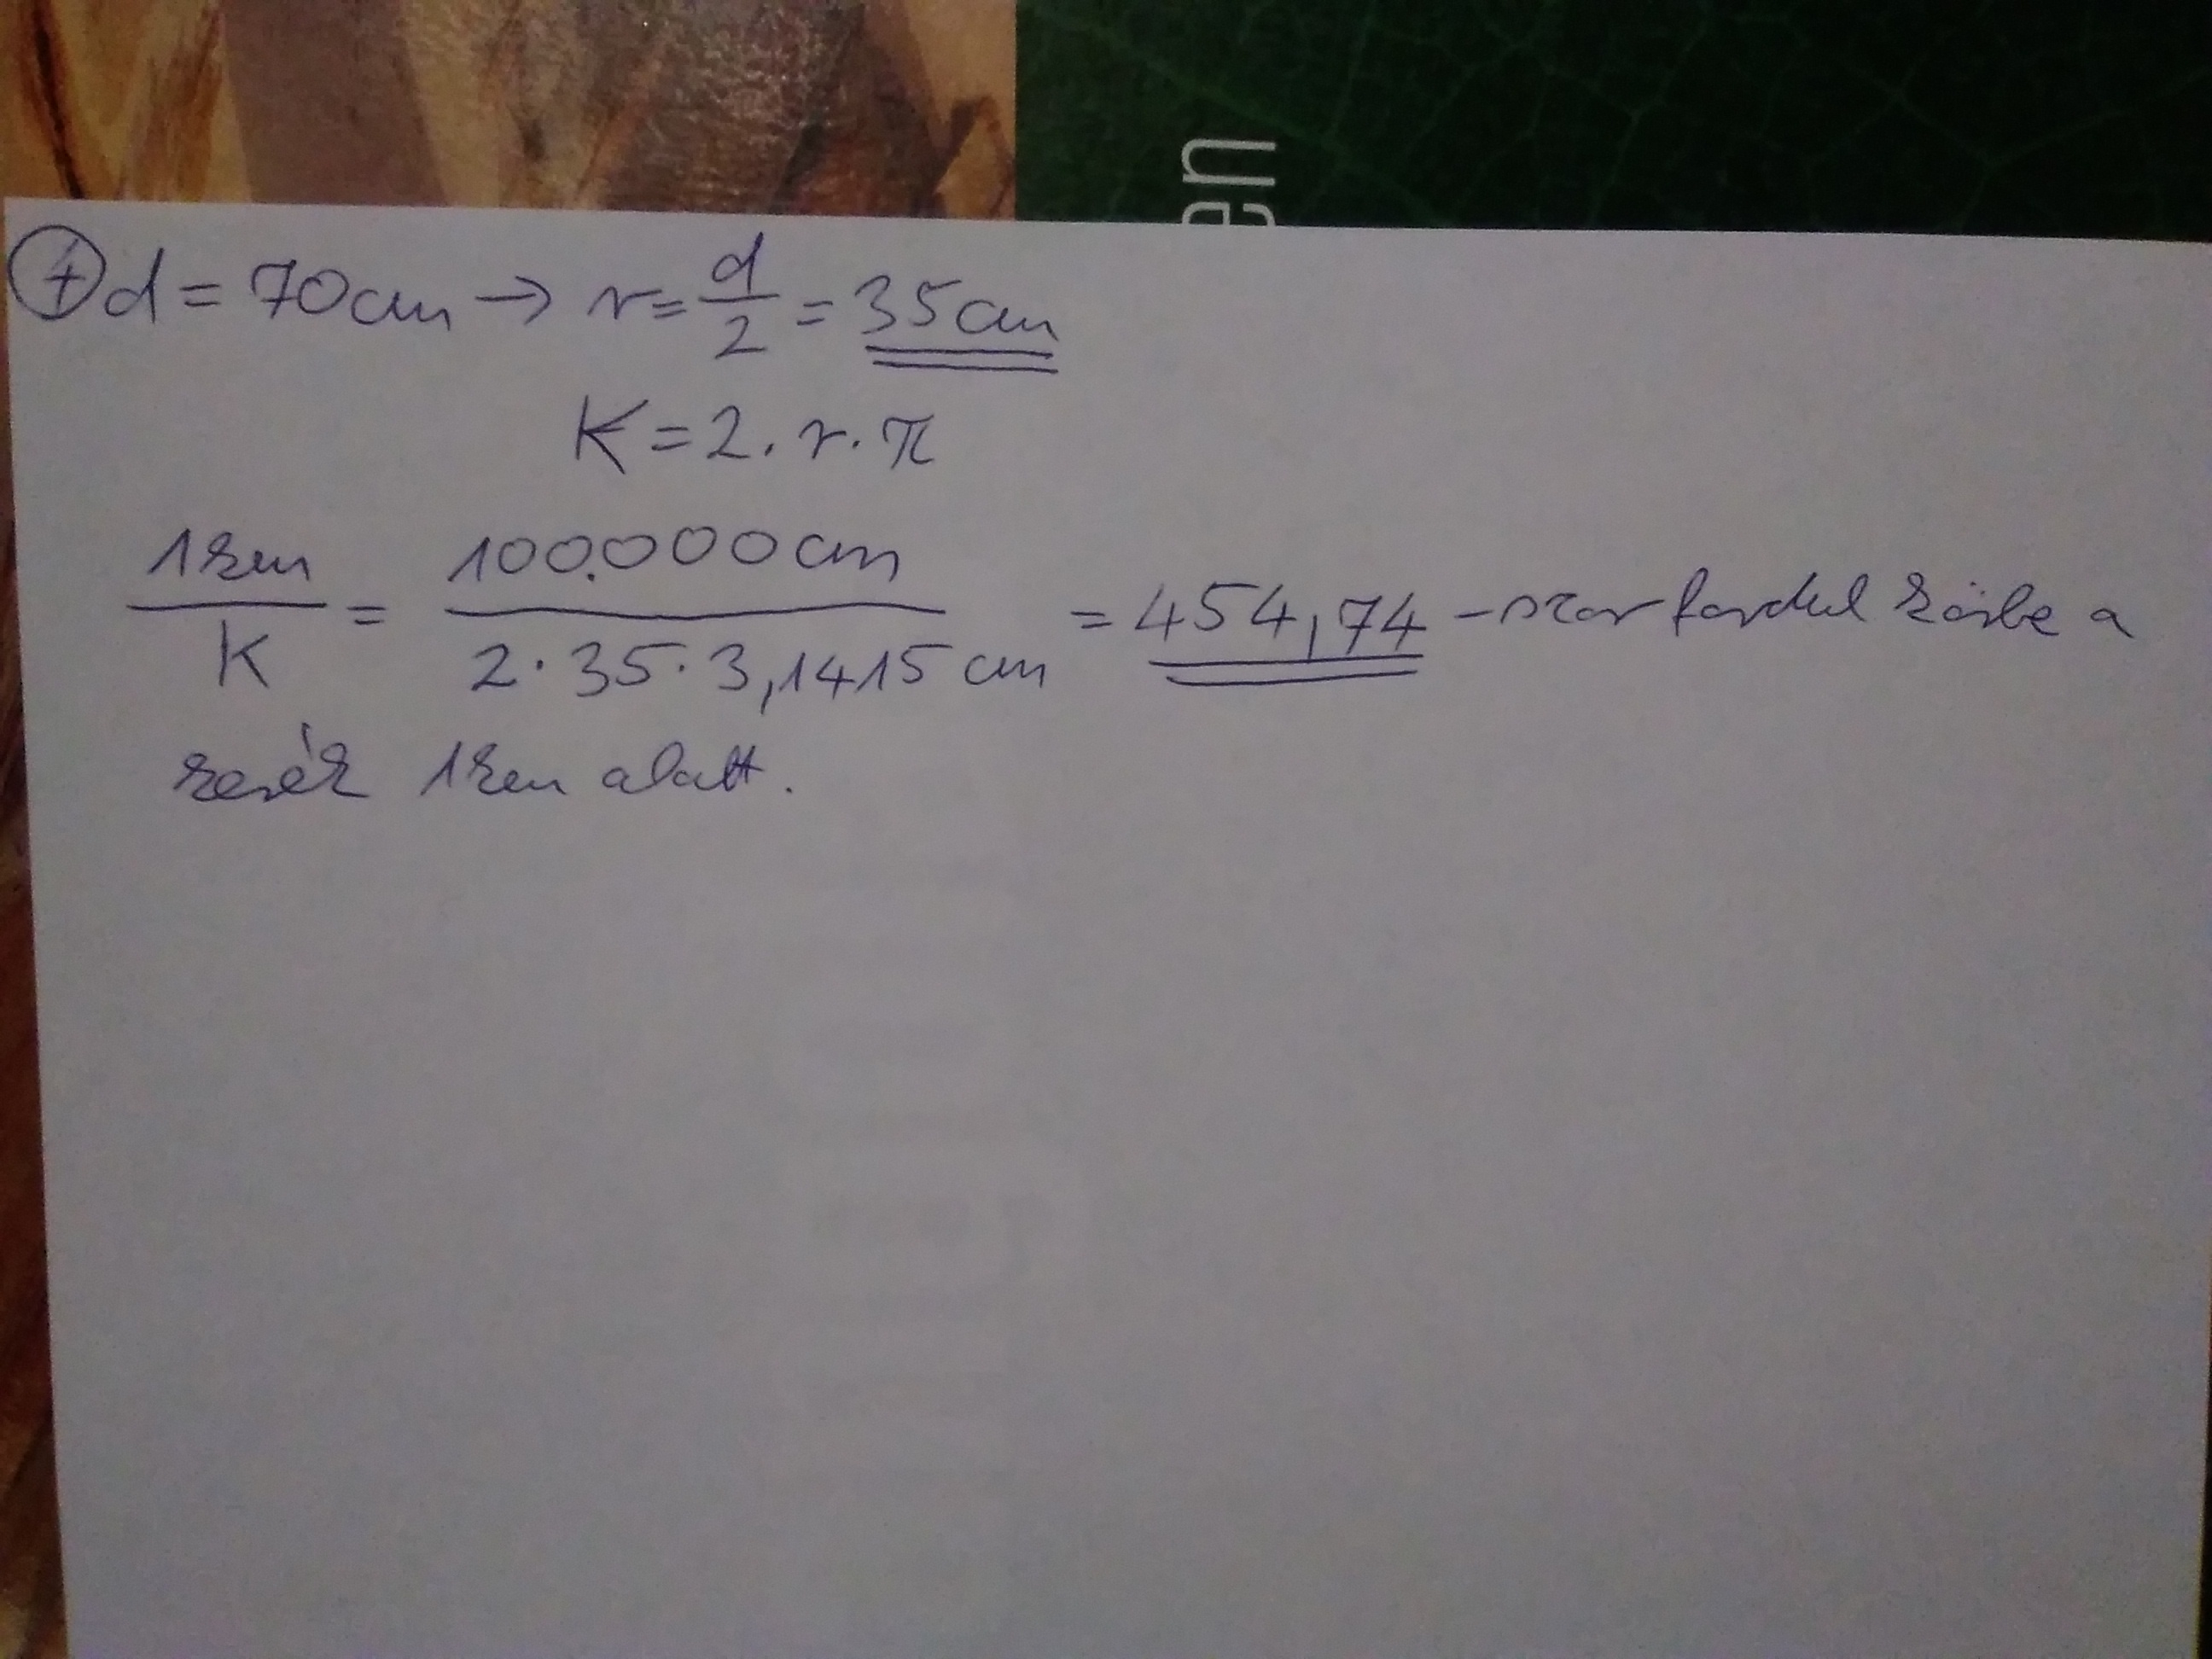 en
④ d = 70cm → r = d/2 = 35cm
K = 2 · r · π
1km/K = 100.000cm/2 · 35 · 3,1415 cm = 454,74 -szor fordul körbe a
kerék 1km alatt.